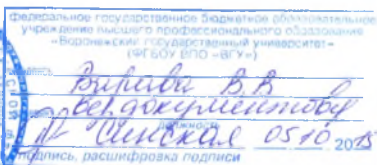 федеральное государственное бюджетное образовательное
учреждение высшего профессионального образования
«Воронежский государственный университет»
(ФГБОУ ВПО «ВГУ»)
Вариава В.В
Вед документовед
должность
Синская 05 10 2015
подпись, расшифровка подписи